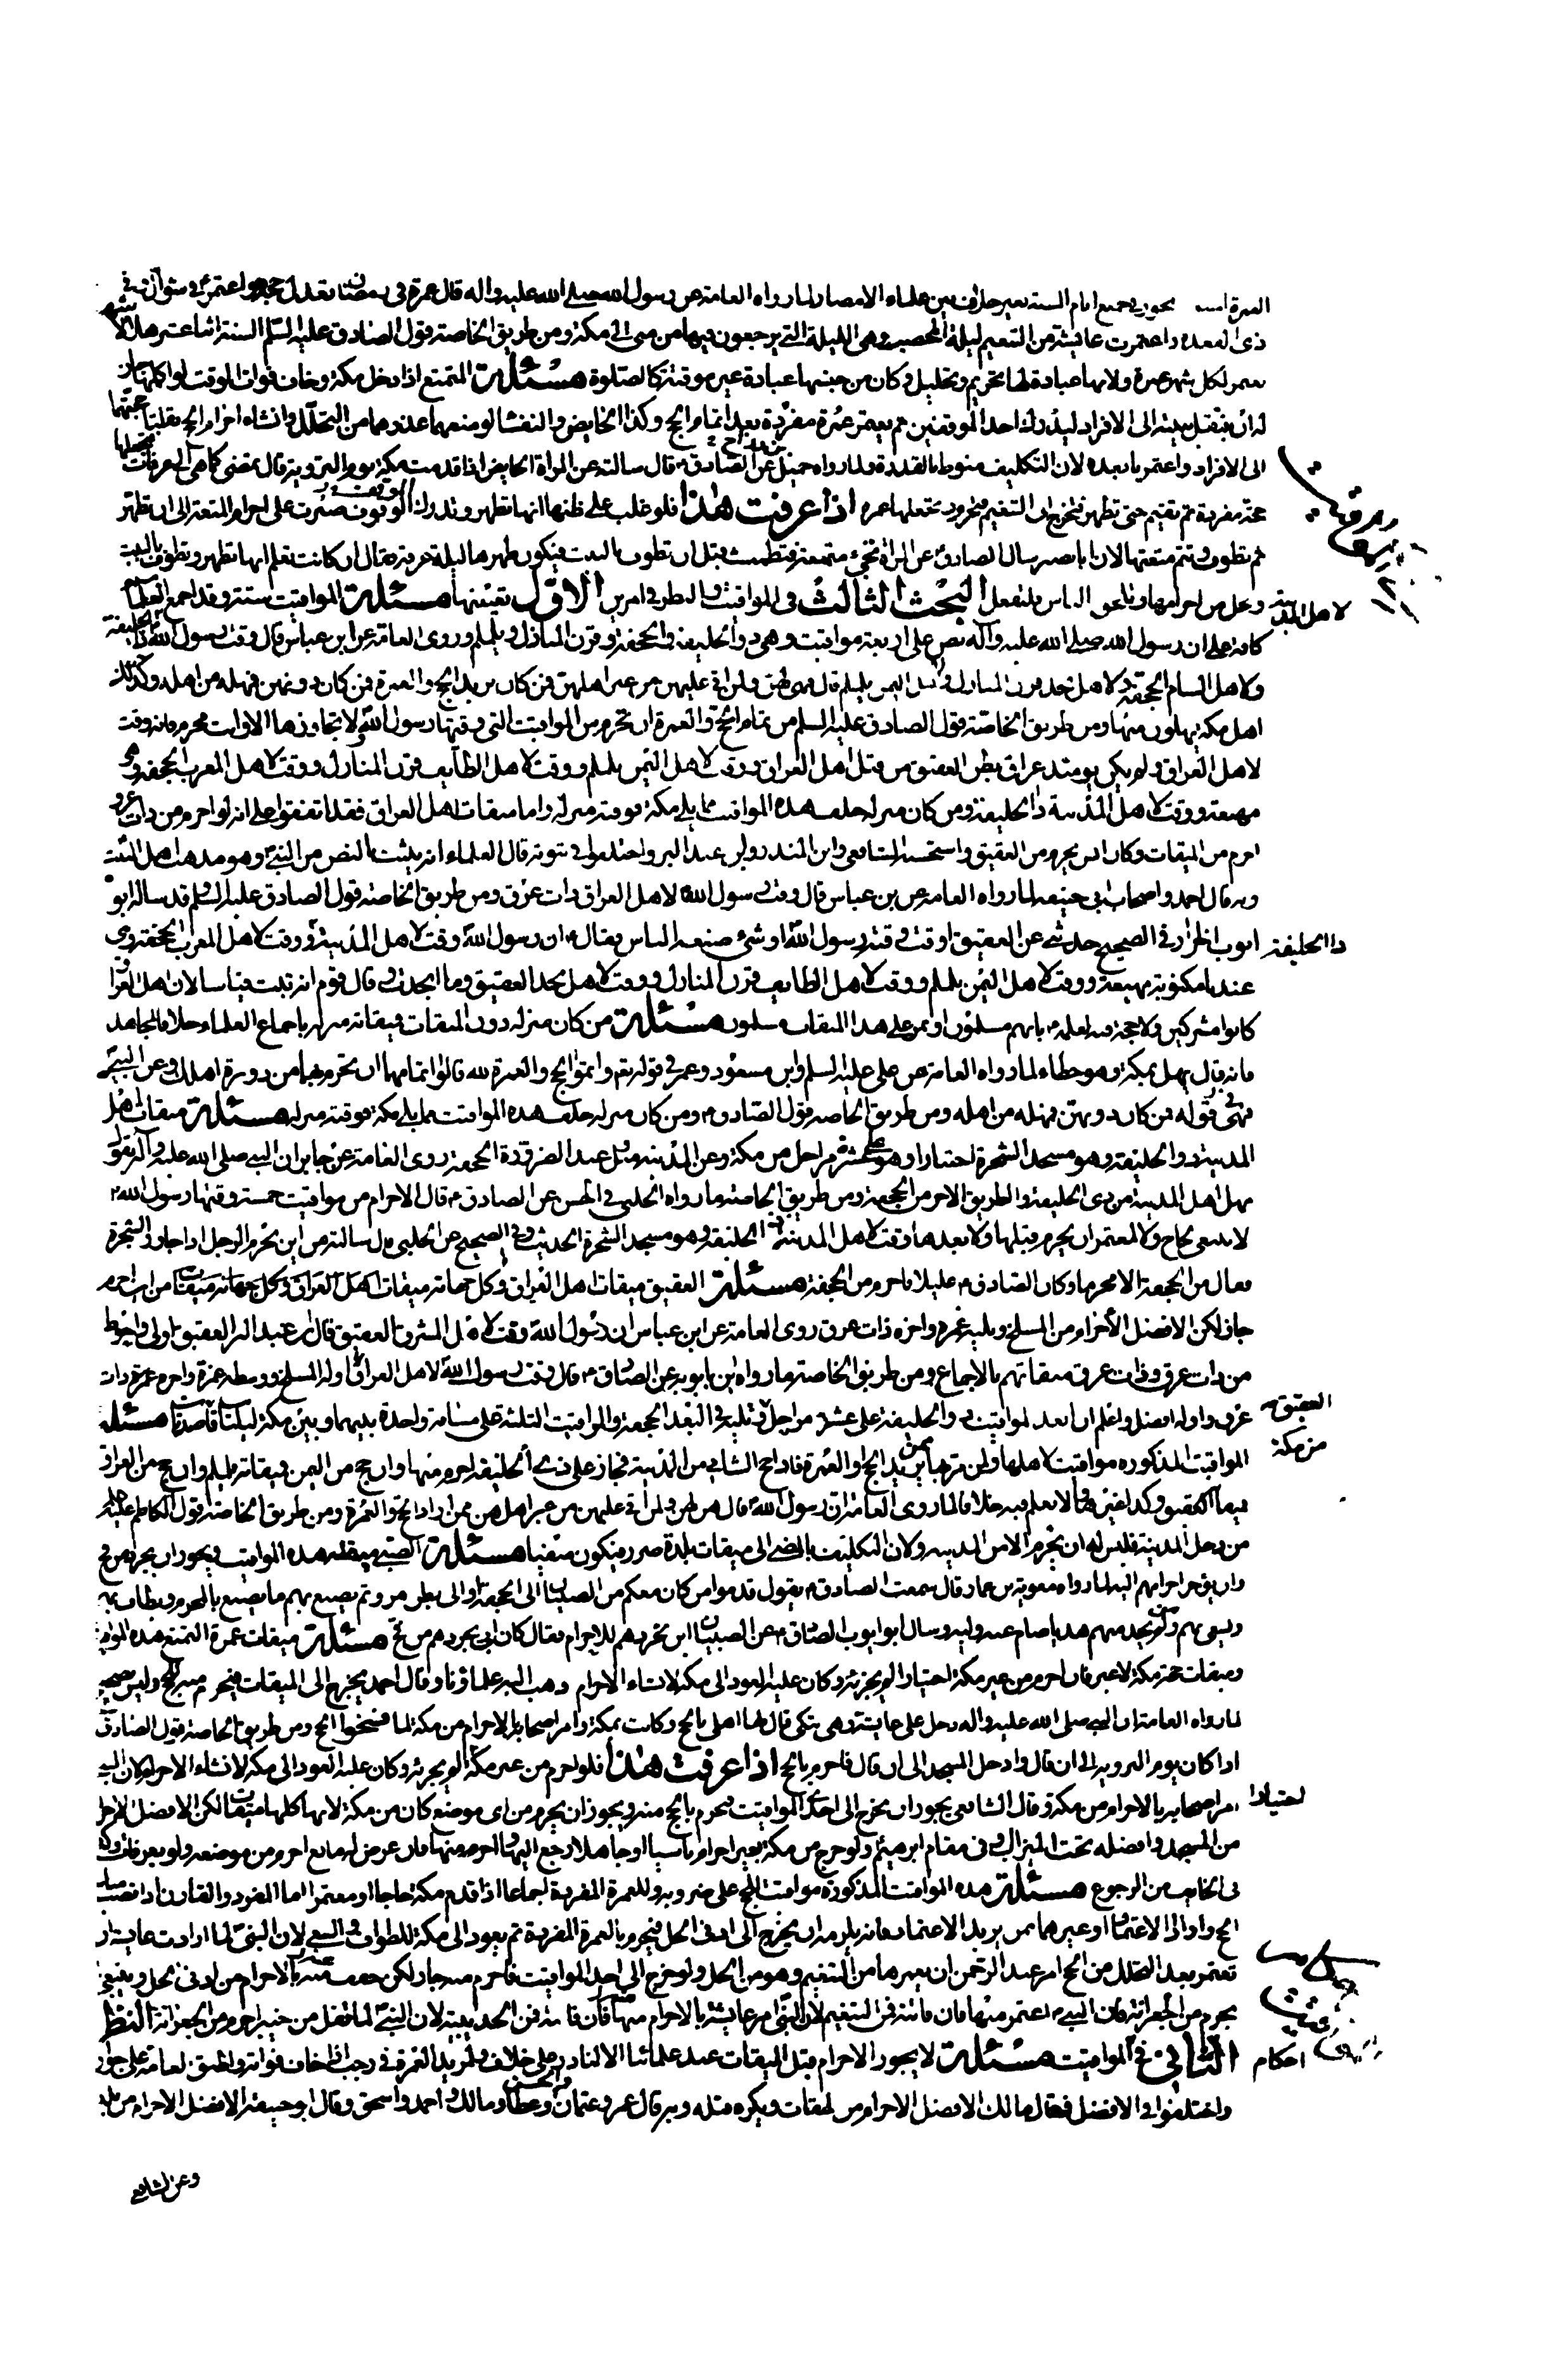 العمرة المبتولة يجوز في جميع ايام السنة بغير خلاف بين علماء الامصار لما رواه العامة عن رسول الله صلى الله عليه واله قال عمرة في رمضان تعدل حجة واعتمر في شوال وفي
ذي القعدة واعتمرت عايشة من التنعيم ليلة المحصب وهي الليلة التي يرجعون فيها من منى الى مكة ومن طريق الخاصة قول الصادق عليه السلم السنة اثنا عشر شهرا
يعتمر لكل شهر عمرة ولانها عبادة لها تحريم وتحليل وكان من جنسها عبادة غير موقتة كالصلوة مسئلة المتمتع اذا دخل مكة وخاف فوات الوقت لو اكملها جاز
له ان ينقل نيته الى الافراد ليدرك احد الموقفين ثم يعتمر عمرة مفردة بعد اتمام الحج وكذا الحايض والنفساء لو منعهما عذرهما من التحلل وانشاء احرام الحج نقلتا حجتهما
الى الافراد واعتمرتا بعده لان التكليف منوط بالقدرة ولما رواه جميل عن الصادق قال سالته عن المراة الحايض اذا قدمت مكة يوم التروية قال تمضي كما هي الى عرفات فتجعلها
حجة مفردة ثم تقيم حتى تطهر فتخرج الى التنعيم فتحرم وتجعلها عمرة اذا عرفت هذا فلو غلب على ظنها انها تطهر وتدرك الوقوف صبرت على احرام المتعة الى ان تطهر
ثم تطوف وتتم متعتها لان ابا بصير سال الصادق عن المراة تجيء متمتعة فتطمث قبل ان تطوف بالبيت فيكون طهرها ليلة عرفة فقال ان كانت تعلم انها تطهر وتطوف بالبيت
وتحل من احرامها وتلحق الناس فلتفعل البحث الثالث في المواقيت والنظر في امرين الاول تعيينها مسئلة المواقيت ستة وقد اجمع العلماء
كافة على ان رسول الله صلى الله عليه وآله نص على اربعة مواقيت وهي ذو الحليفة والجحفة وقرن المنازل ويلملم وروى العامة عن ابن عباس قال وقت رسول الله ذا الحليفة
لاهل المدينة
ولاهل الشام الجحفة ولاهل نجد قرن المنازل ولاهل اليمن يلملم قال فهي لهن ولمن اتى عليهن من غير اهلهن فمن كان يريد الحج والعمرة فمن كان دونهن فمهله من اهله وكذلك
اهل مكة يهلون منها ومن طريق الخاصة قول الصادق عليه السلم من تمام الحج والعمرة ان تحرم من المواقيت التي وقتها رسول الله لا تجاوزها الا وانت محرم فانه وقت
لاهل العراق ولم يكن يومئذ عراق بطن العقيق من قبل اهل العراق ووقت لاهل اليمن يلملم ووقت لاهل الطايف قرن المنازل ووقت لاهل المغرب الجحفة وهي
مهيعة ووقت لاهل المدينة ذا الحليفة ومن كان منزله خلف هذه المواقيت مما يلي مكة فوقته منزله واما ميقات اهل العراق فقد اتفقوا على انه لو احرم من ذات عرق
احرم من الميقات وكان انس يحرم من العقيق واستحسنه الشافعي وابن المنذر وابن عبد البر واختلفوا في ثبوته قال العلماء انه يثبت بالنص من النبي وهو مذهب اهل البيت
وبه قال احمد واصحاب ابي حنيفة لما رواه العامة عن ابن عباس قال وقت رسول الله لاهل العراق ذات عرق ومن طريق الخاصة قول الصادق عليه السلم وقد ساله ابو
ايوب الخزاز في الصحيح حدثني عن العقيق اوقت وقته رسول الله او شيء صنعه الناس فقال ان رسول الله وقت لاهل المدينة ووقت لاهل المغرب الجحفة وهي
ذا الحليفة
عندنا مكتوبة مهيعة ووقت لاهل اليمن يلملم ووقت لاهل الطايف قرن المنازل ووقت لاهل نجد العقيق وما انجدت وقال قوم انه ثبت قياسا لان اهل العراق
كانوا مشركين ولا حجة فيه لعلمه بانهم يسلمون او يمر على هذا الميقات مسلمون مسئلة من كان منزله دون الميقات فميقاته منزله باجماع العلماء خلافا لمجاهد
فانه قال يهل بمكة وهو خطاء لما رواه العامة عن علي عليه السلم وابن مسعود وعمر في قوله تعالى واتموا الحج والعمرة لله قالوا اتمامهما ان تحرم بهما من دويرة اهلك وعن النبي
في قوله فمن كان دونهن فمهله من اهله ومن طريق الخاصة قول الصادق ومن كان منزله خلف هذه المواقيت مما يلي مكة فوقته منزله مسئلة ميقات اهل
المدينة ذو الحليفة وهو مسجد الشجرة اختيارا وهو على عشر مراحل من مكة وعن المدينة ميل وعند الضرورة الجحفة روى العامة عن جابر ان النبي صلى الله عليه وآله قال
مهل اهل المدينة من ذي الحليفة والطريق الاخر من الجحفة ومن طريق الخاصة ما رواه الحلبي في الحسن عن الصادق قال الاحرام من مواقيت خمسة وقتها رسول الله
لا ينبغي لحاج ولا لمعتمر ان يحرم قبلها ولا بعدها وقت لاهل المدينة ذا الحليفة وهو مسجد الشجرة الحديث وفي الصحيح عن الحلبي قال سالته من اين يحرم الرجل اذا جاوز الشجرة
فقال من الجحفة الا محرما وكان الصادق عليلا فاحرم من الجحفة مسئلة العقيق ميقات اهل العراق وكل جهاته ميقات من اين احرم
جاز لكن الافضل الاحرام من المسلخ ويليه غمرة واخره ذات عرق روى العامة عن ابن عباس ان رسول الله وقت لاهل المشرق العقيق قال ابن عبد البر العقيق اولى واحوط
من ذات عرق وذات عرق ميقاتهم بالاجماع ومن طريق الخاصة ما رواه ابن بابويه عن الصادق قال وقت رسول الله لاهل العراق العقيق اوله المسلخ ووسطه غمرة واخره ذات
العقيق
عرق واوله افضل واعلم ان ابعد المواقيت ذو الحليفة على عشر مراحل ويليه في البعد الجحفة والمواقيت الثلثة على مسافة واحدة بينها وبين مكة ليلتان قاصدتان مسئلة
من مكة
المواقيت المذكورة مواقيت لاهلها ولمن مر بها ممن يريد الحج او العمرة فاذا حج الشامي من المدينة فجاز على ذي الحليفة احرم منها وان حج من اليمن فميقاته يلملم وان حج من العراق
فميقاته العقيق وكذا غيرهم ولا نعلم فيه خلافا لما روى العامة ان رسول الله قال هن لهن ولمن اتى عليهن من غير اهلهن ممن اراد الحج والعمرة ومن طريق الخاصة قول الكاظم عليه السلم
من دخل المدينة فليس له ان يحرم الا من المدينة ولان التكليف بالمضي الى ميقات بلده ضرر فيكون منفيا مسئلة الصبي ميقاته هذه المواقيت ويجوز ان يجرد من فخ
وان يؤخر احرامهم اليه لما رواه معوية بن عمار قال سمعت الصادق يقول قدموا من كان معكم من الصبيان الى الجحفة او الى بطن مر وثم يصنع بهم ما يصنع بالمحرم ويطاف بهم
ويسعى بهم ومن لم يجد منهم هديا صام عنه وليه وسال ابو ايوب الصادق عن الصبيان اين نجردهم للاحرام فقال كان ابي يجردهم من فخ مسئلة ميقات عمرة التمتع هذه المواقيت
وميقات حجه مكة لا غير فان احرم من غير مكة اختيارا لم يجزئه وكان عليه العود الى مكة لانشاء الاحرام ذهب اليه علماؤنا وقال احمد يخرج الى الميقات فيحرم منه للحج وليس بصحيح
لما رواه العامة ان النبي صلى الله عليه واله دخل على عايشة وهي تبكي قال لها اهلي بالحج وكانت بمكة وامر اصحابه بالاحرام من مكة لما فسخوا الحج ومن طريق الخاصة قول الصادق
اذا كان يوم التروية الى ان قال وادخل المسجد الى ان قال فاحرم بالحج اذا عرفت هذا فلو احرم من غير مكة لم يجزئه وكان عليه العود الى مكة لانشاء الاحرام لان النبي
اختيارا
امر اصحابه بالاحرام من مكة وقال الشافعي يجوز ان يخرج الى احد المواقيت فيحرم بالحج منه ويجوز ان يحرم من اي موضع كان من مكة لانها كلها ميقات لكن الافضل الاحرام
من المسجد وافضله تحت الميزاب او في مقام ابرهيم ولو خرج من مكة بغير احرام ناسيا او جاهلا رجع اليها واحرم منها فان عرض له مانع احرم من موضعه ولو بعرفات
مسئلة هذه المواقيت المذكورة مواقيت للحج على ضروبه وللعمرة المفردة اجماعا اذا قدم مكة حاجا او معتمرا اما المفرد والقارن اذا قضيا
الحج وارادا الاعتمار او غيرهما ممن يريد الاعتمار فانه يلزمه ان يخرج الى ادنى الحل فيحرم بالعمرة المفردة ثم يعود الى مكة للطواف والسعي لان النبي لما ارادت عايشة ان
تعتمر بعد التحلل من الحج امر عبد الرحمن ان يعمرها من التنعيم وهو من الحل ولو خرج الى احد المواقيت فاحرم منه جاز لكن خفف عنه بالاحرام من ادنى الحل وينبغي
يحرم من الجعرانة فان النبي اعتمر منها فان فاتته فمن التنعيم لان النبي امر عايشة بالاحرام منها فان فاته فمن الحديبية لان النبي لما قفل من خيبر احرم من الجعرانة النظر
الثاني في المواقيت مسئلة لا يجوز الاحرام قبل الميقات عند علمائنا الا لناذر على خلاف ولمريد العمرة في رجب اذا خاف فواته واطبق العامة على جوازه
احكام
واختلفوا في الافضل فقال مالك الافضل الاحرام من الميقات ويكره قبله وبه قال عمر وعثمان والحسن وعطا ومالك واحمد واسحق وقال ابو حنيفة الافضل الاحرام من بلده
وعن الشافعي